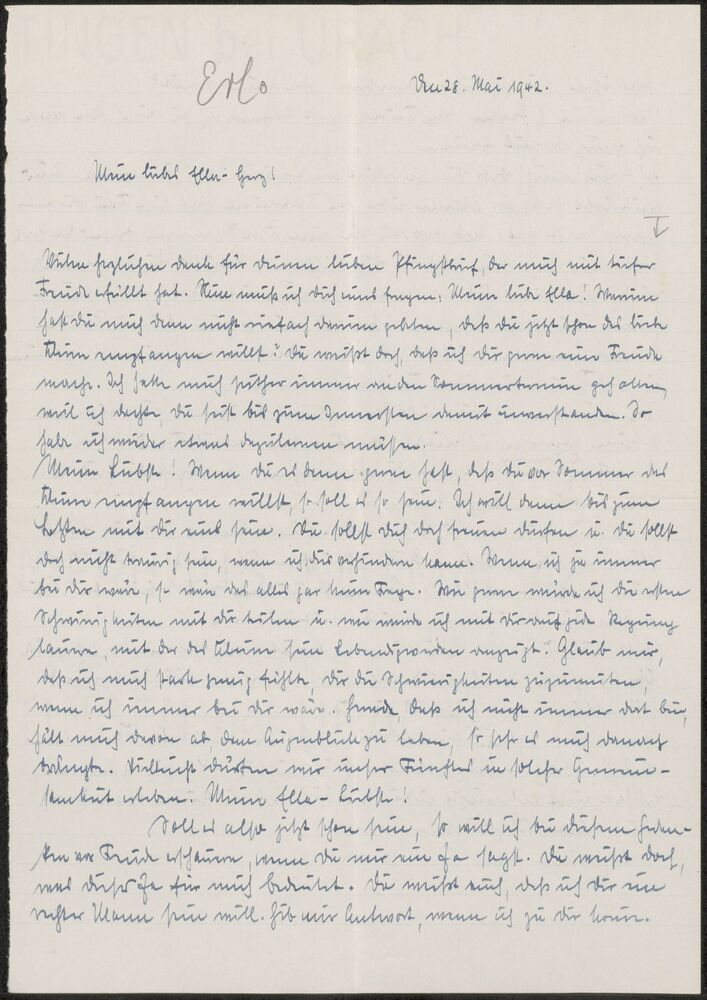 Erl.
Den 28. Mai 1942.
Mein liebes Ella-Herz!
I
Vielen herzlichen Dank für Deinen lieben Pfingstbrief, der mich mit tiefer
Freude erfüllt hat. Nun muß ich Dich eins fragen: Meine liebe Ella! Warum
hast Du mich denn nicht einfach darum gebeten, daß Du jetzt schon das liebe
Kleine empfangen willst? Du weißt doch, daß ich Dir gern eine Freude
mache. Ich hatte mich seither immer an den Sommertermin gehalten,
weil ich dachte, Du seist bis zum Innersten damit einverstanden. So
habe ich wieder etwas dazulernen müssen.
Meine Liebste! Wenn Du es denn gerne hast, daß Du vor Sommer das
Kleine empfangen willst, so soll es so sein. Ich will denn bis zum
Letzten mit Dir eins sein. Du sollst Dich doch freuen dürfen u. Du sollst
doch nicht traurig sein, wenn ich dies verhindern kann. Wenn ich ja immer
bei Dir wäre, so wäre das alles gar keine Frage. Wie gerne würde ich die ersten
Schwierigkeiten mit Dir teilen u. wie würde ich mit Dir auf jede Regung
lauern, mit der das Kleine sein Lebendigwerden anzeigt. Glaub mir,
daß ich mich stark genug fühlte, Dir die Schwierigkeiten zuzumuten,
wenn ich immer bei Dir wäre. Gerade, daß ich nicht immer dort bin,
hält mich davon ab, dem Augenblick zu leben, so sehr es mich danach
drängte. Vielleicht dürfen wir unser Fünftes in solcher Gemein-
samkeit erleben. Meine Ella-Liebste!
Soll es also jetzt schon sein, so will ich bei diesem Gedan-
ken vor Freude erschauern, wenn Du mir ein Ja sagst. Du weißt doch,
was dieses Ja für mich bedeutet. Du weißt auch, daß ich Dir ein
rechter Mann sein will. Gib mir Antwort, wenn ich zu Dir komme.